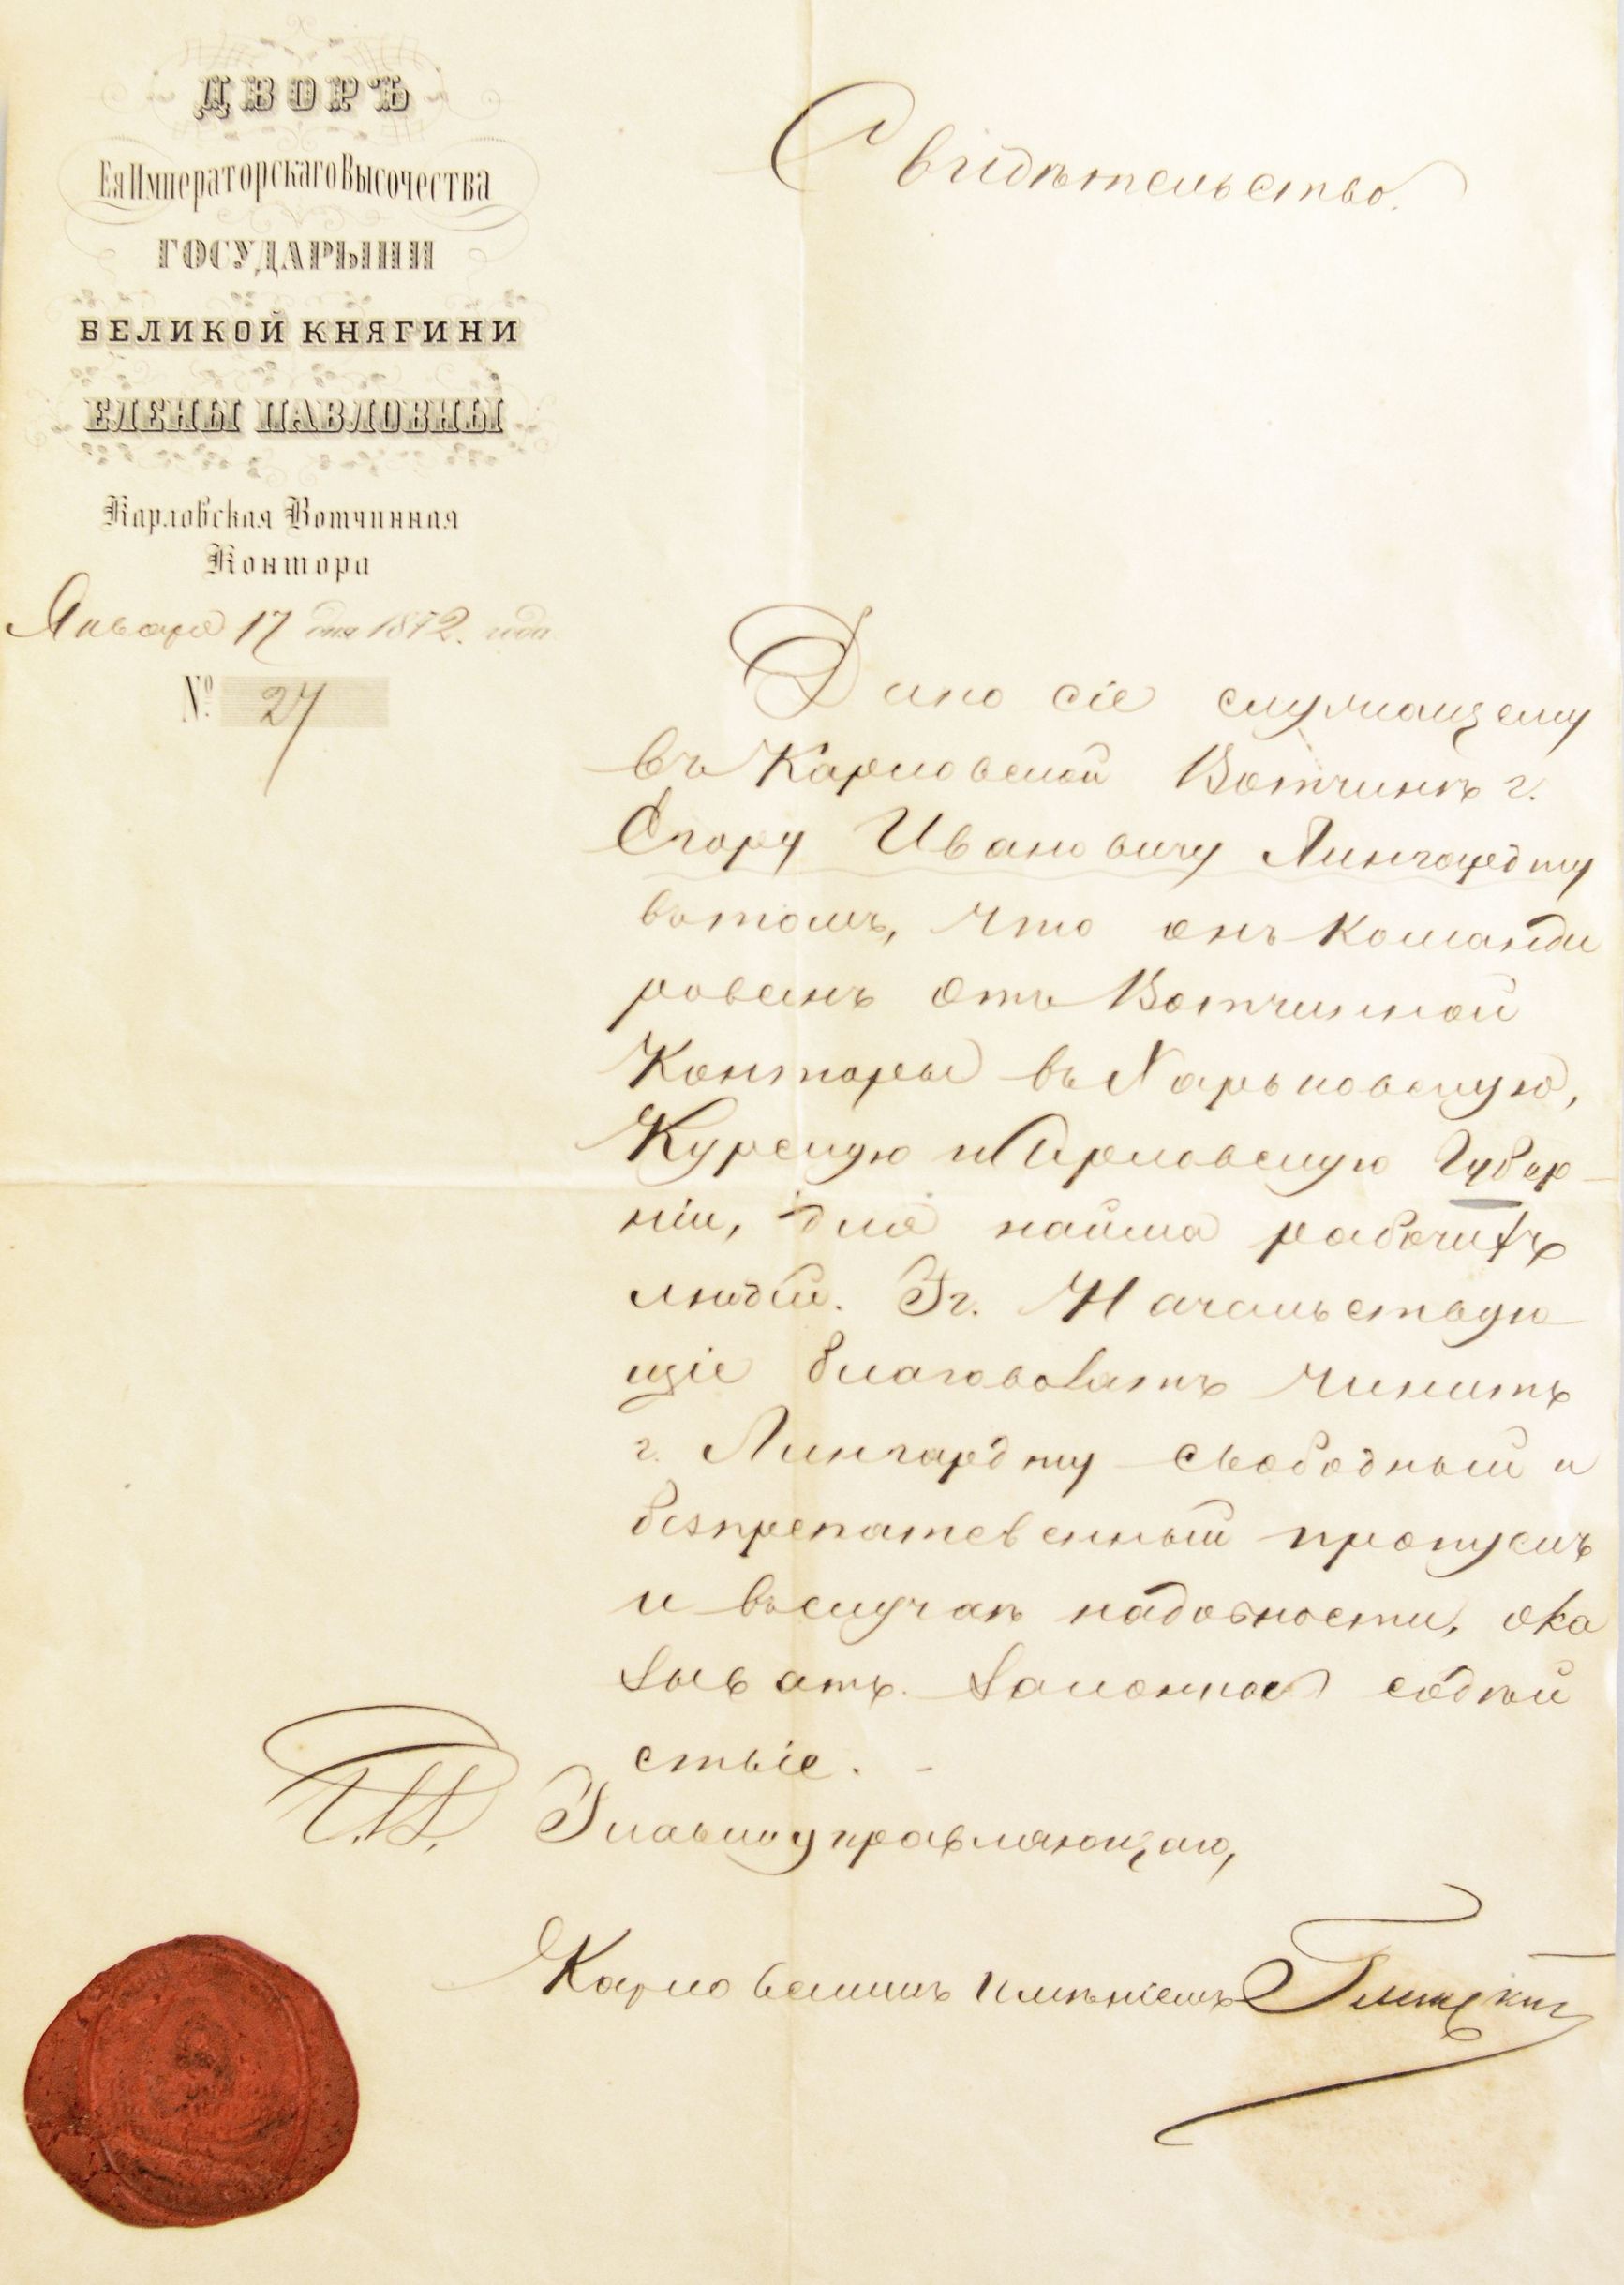 ДВОРЪ
Ея Императорскаго Высочества
ГОСУДАРЫНИ
ВЕЛИКОЙ КНЯГИНИ
ЕЛЕНЫ ПАВЛОВНЫ
Карловская Вотчинная
Контора
Января 17 дня 1872. года
№ 27
Свидѣтельство.
Дано сіе служащему
въ Карловской Вотчинѣ г.
Егору Ивановичу Лингардту
вотомъ, что онъ команди
рованъ отъ Вотчинной
Конторы въ Харьковскую,
Курскую и Орловскую Губер-
ніи, для найма рабочихъ
людей. Гг. Начальствую-
щіе благоволятъ чинить
г. Лингардту свободный и
безпрепятственный пропускъ
и въ случаѣ надобности, ока
зывать законное содѣй
ствіе. -
Главноуправляющаго,
Карловскимъ имѣніемъ